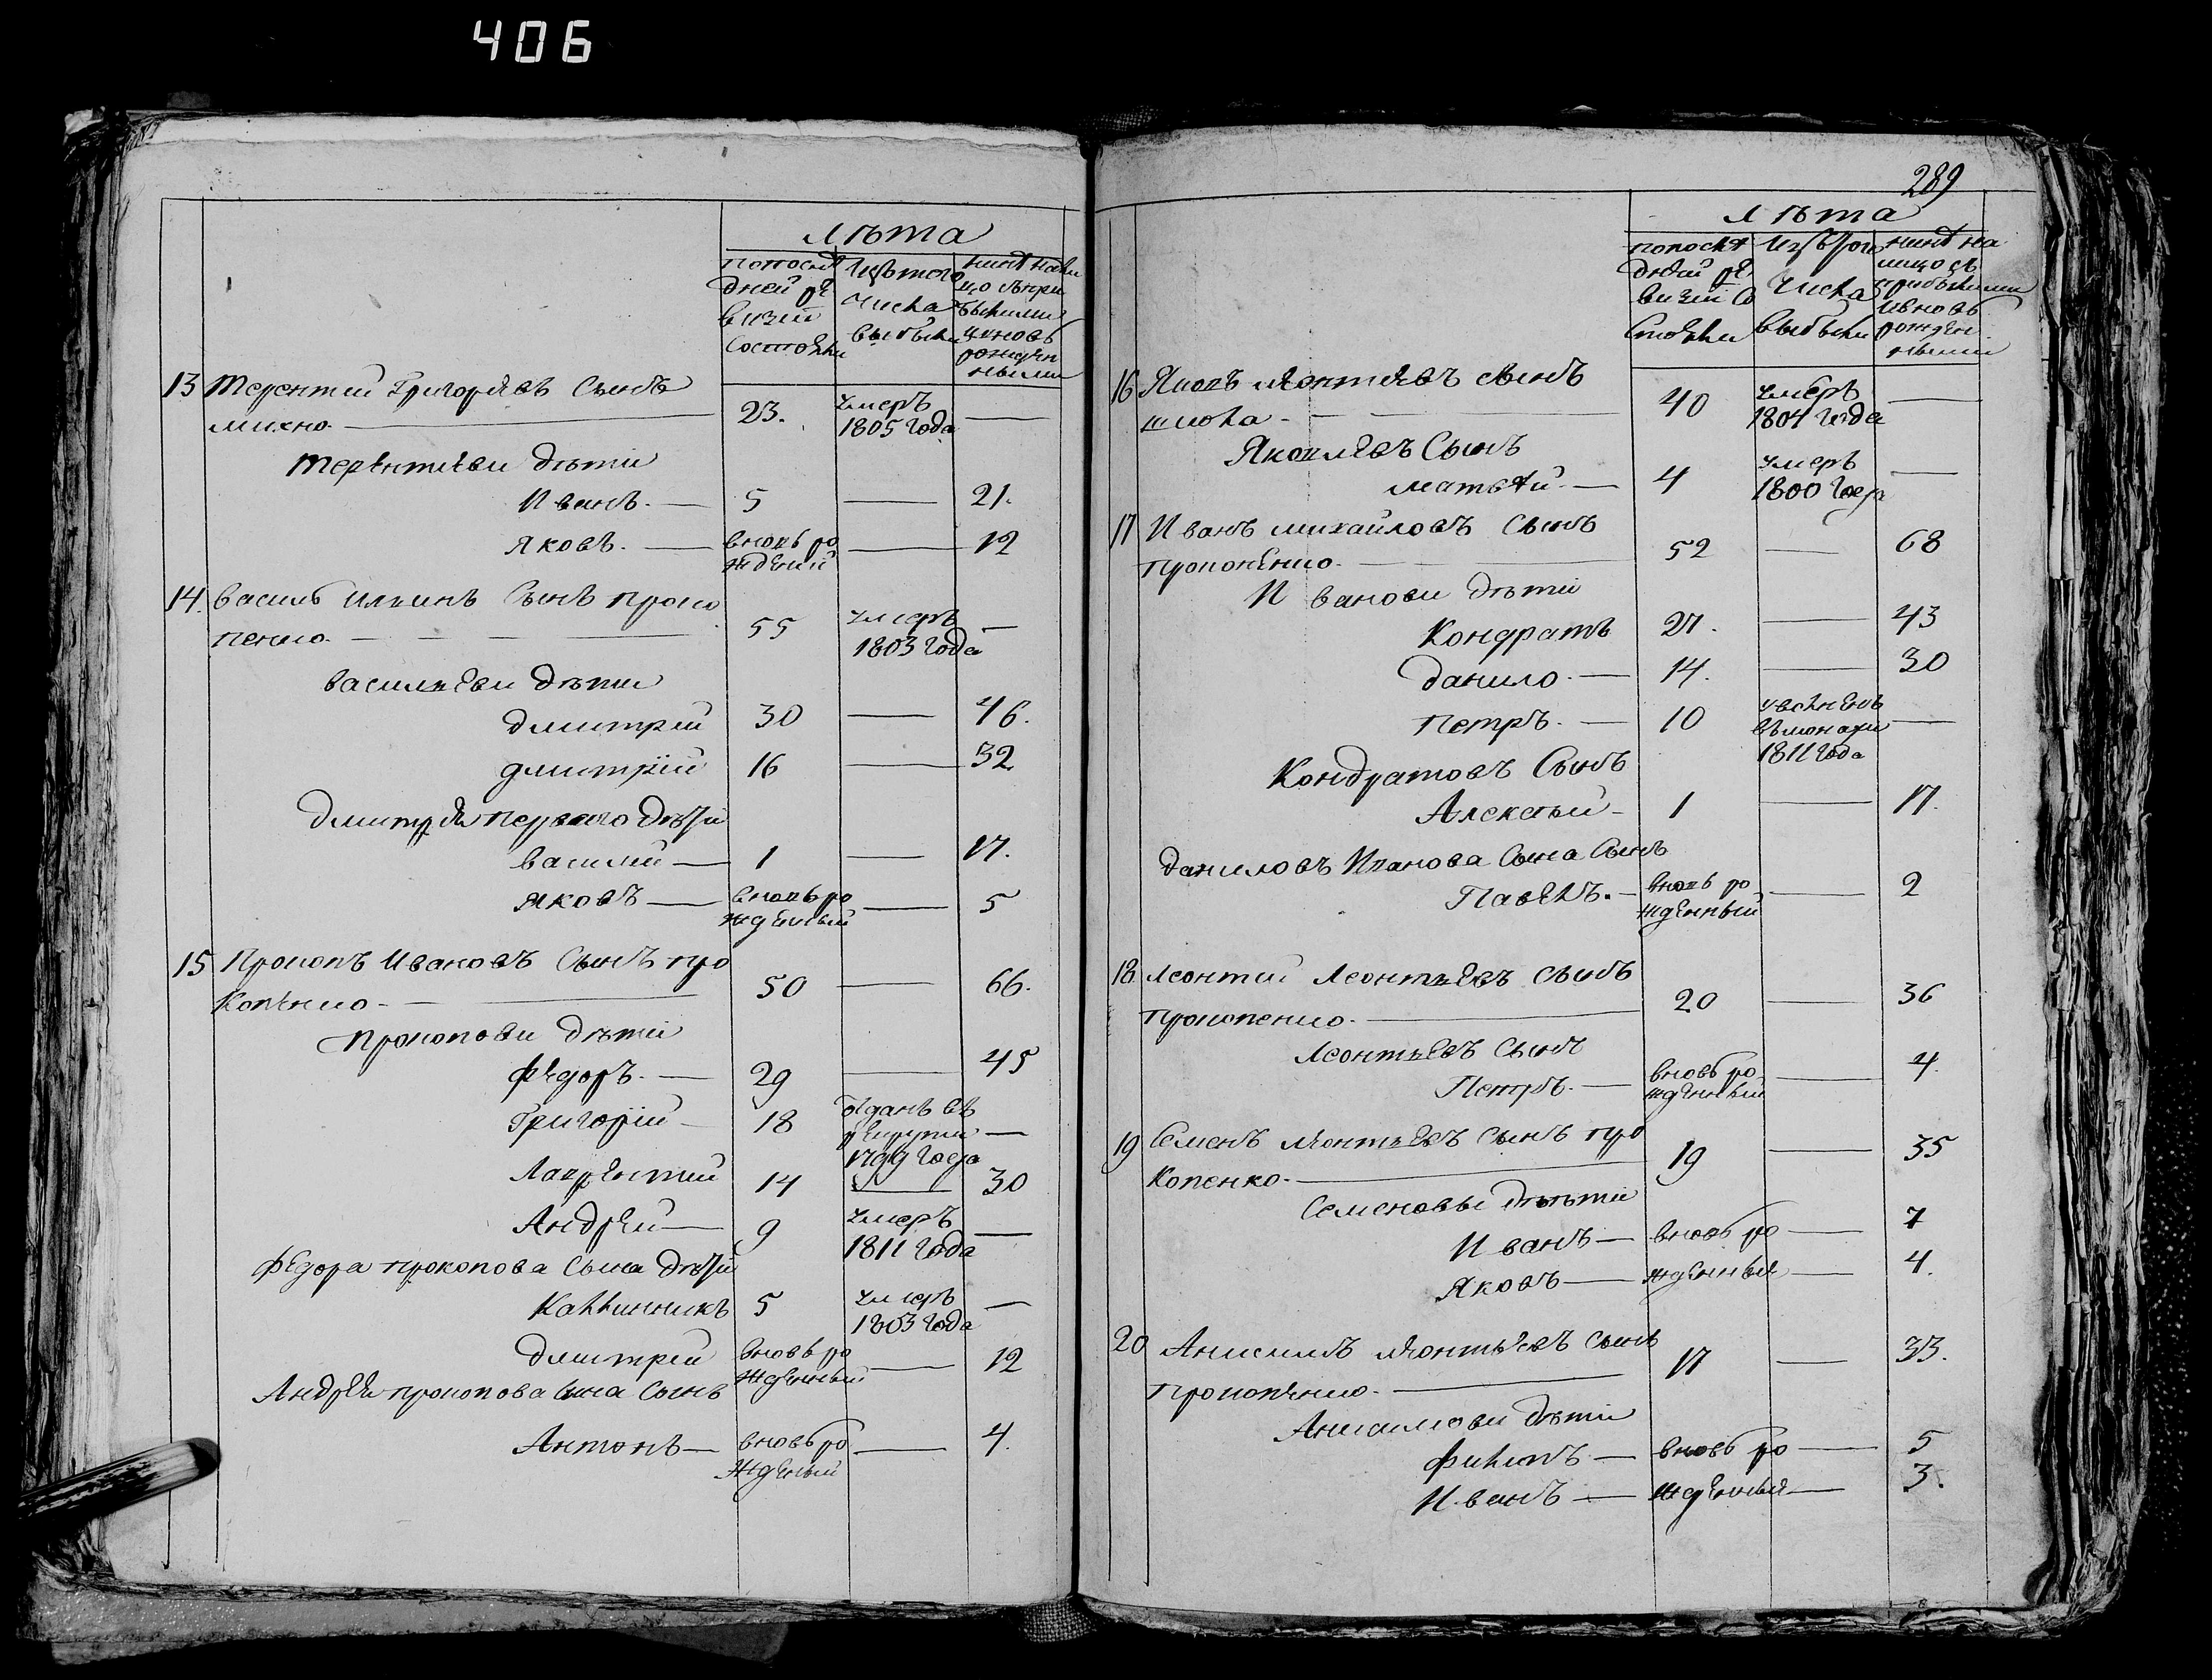 406
лѣта
попослѣ
дней ре
визіи
состояли
изъ того
числа
выбыли
нынѣ нали
цо съ при
былыми
и вновь
рожден
ными
13 Терентий Григорьевъ Сынъ
михно. — 23. умеръ —
1805 года
Терентиеви дѣти
Иванъ. — 5 — 21.
Яковъ. — вновь ро — 12
ждений
14. Василь Ильинъ Сынъ Проко
пенко. — 55 умеръ —
1803 года
васильеви дѣти
дмитрий 30 — 46.
дмитрій 16 — 32
Дмитрея первого дѣти
василий — 1 — 17.
яковъ — вновь ро — 5
жденный
15 Прокопъ Ивановъ Сынъ про
копенко. — 50 — 66.
прокопови дѣти
Федоръ. — 29 — 45
Григорій — 18 отданъ въ
рекруты —
1799 года
Лаврентий 14 — 30
Андрей — 9 умеръ —
1811 года
Федора прокопова сына дѣти
Каллинникъ 5 умеръ —
1803 года
дмитрей вновь ро — 12
жденный
Андрея прокопова сина сынъ
Антонъ — вновь ро — 4.
жденый
289
лѣта
попослѣ
дней ре
визіи со
стояли
изъ того
числа
выбыли
нынѣ на
лицо съ
прибылыми
и вновь
рожден
ными
16 Яковъ Леонтиевъ сынъ
— 40 умеръ —
1804 года
Яковлевъ Сынъ
матвѣй. — 4 умеръ —
1800 года
17 Иванъ михайловъ Сынъ
прокопенко. — 52 — 68
Иванови дѣти
Кондратъ 27. — 43
данило. — 14. — 30
петръ. — 10 уволненъ
въ монахи —
1811 года
Кондратовъ Сынъ
Алексѣй — 1 — 17.
даниловъ Иванова Сына Сынъ
Павелъ. — вновь ро — 2
жденный
18 Леонтий Леонтьевъ сынъ
прокопенко. — 20 — 36
Леонтьевъ сынъ
Петръ. — вновь ро — 4.
жденный
19 Семенъ Леонтьевъ сынъ про
копенко. — 19 — 35
Семеновы дѣти
Иванъ — вновь ро — 7
яковъ — жденныя — 4.
20 Анисимъ Леонтьевъ сынъ
прокопенко. — 17 — 33.
Анисимови дѣти
Филипъ — вновь ро — 5
Иванъ — жденныя — 3.